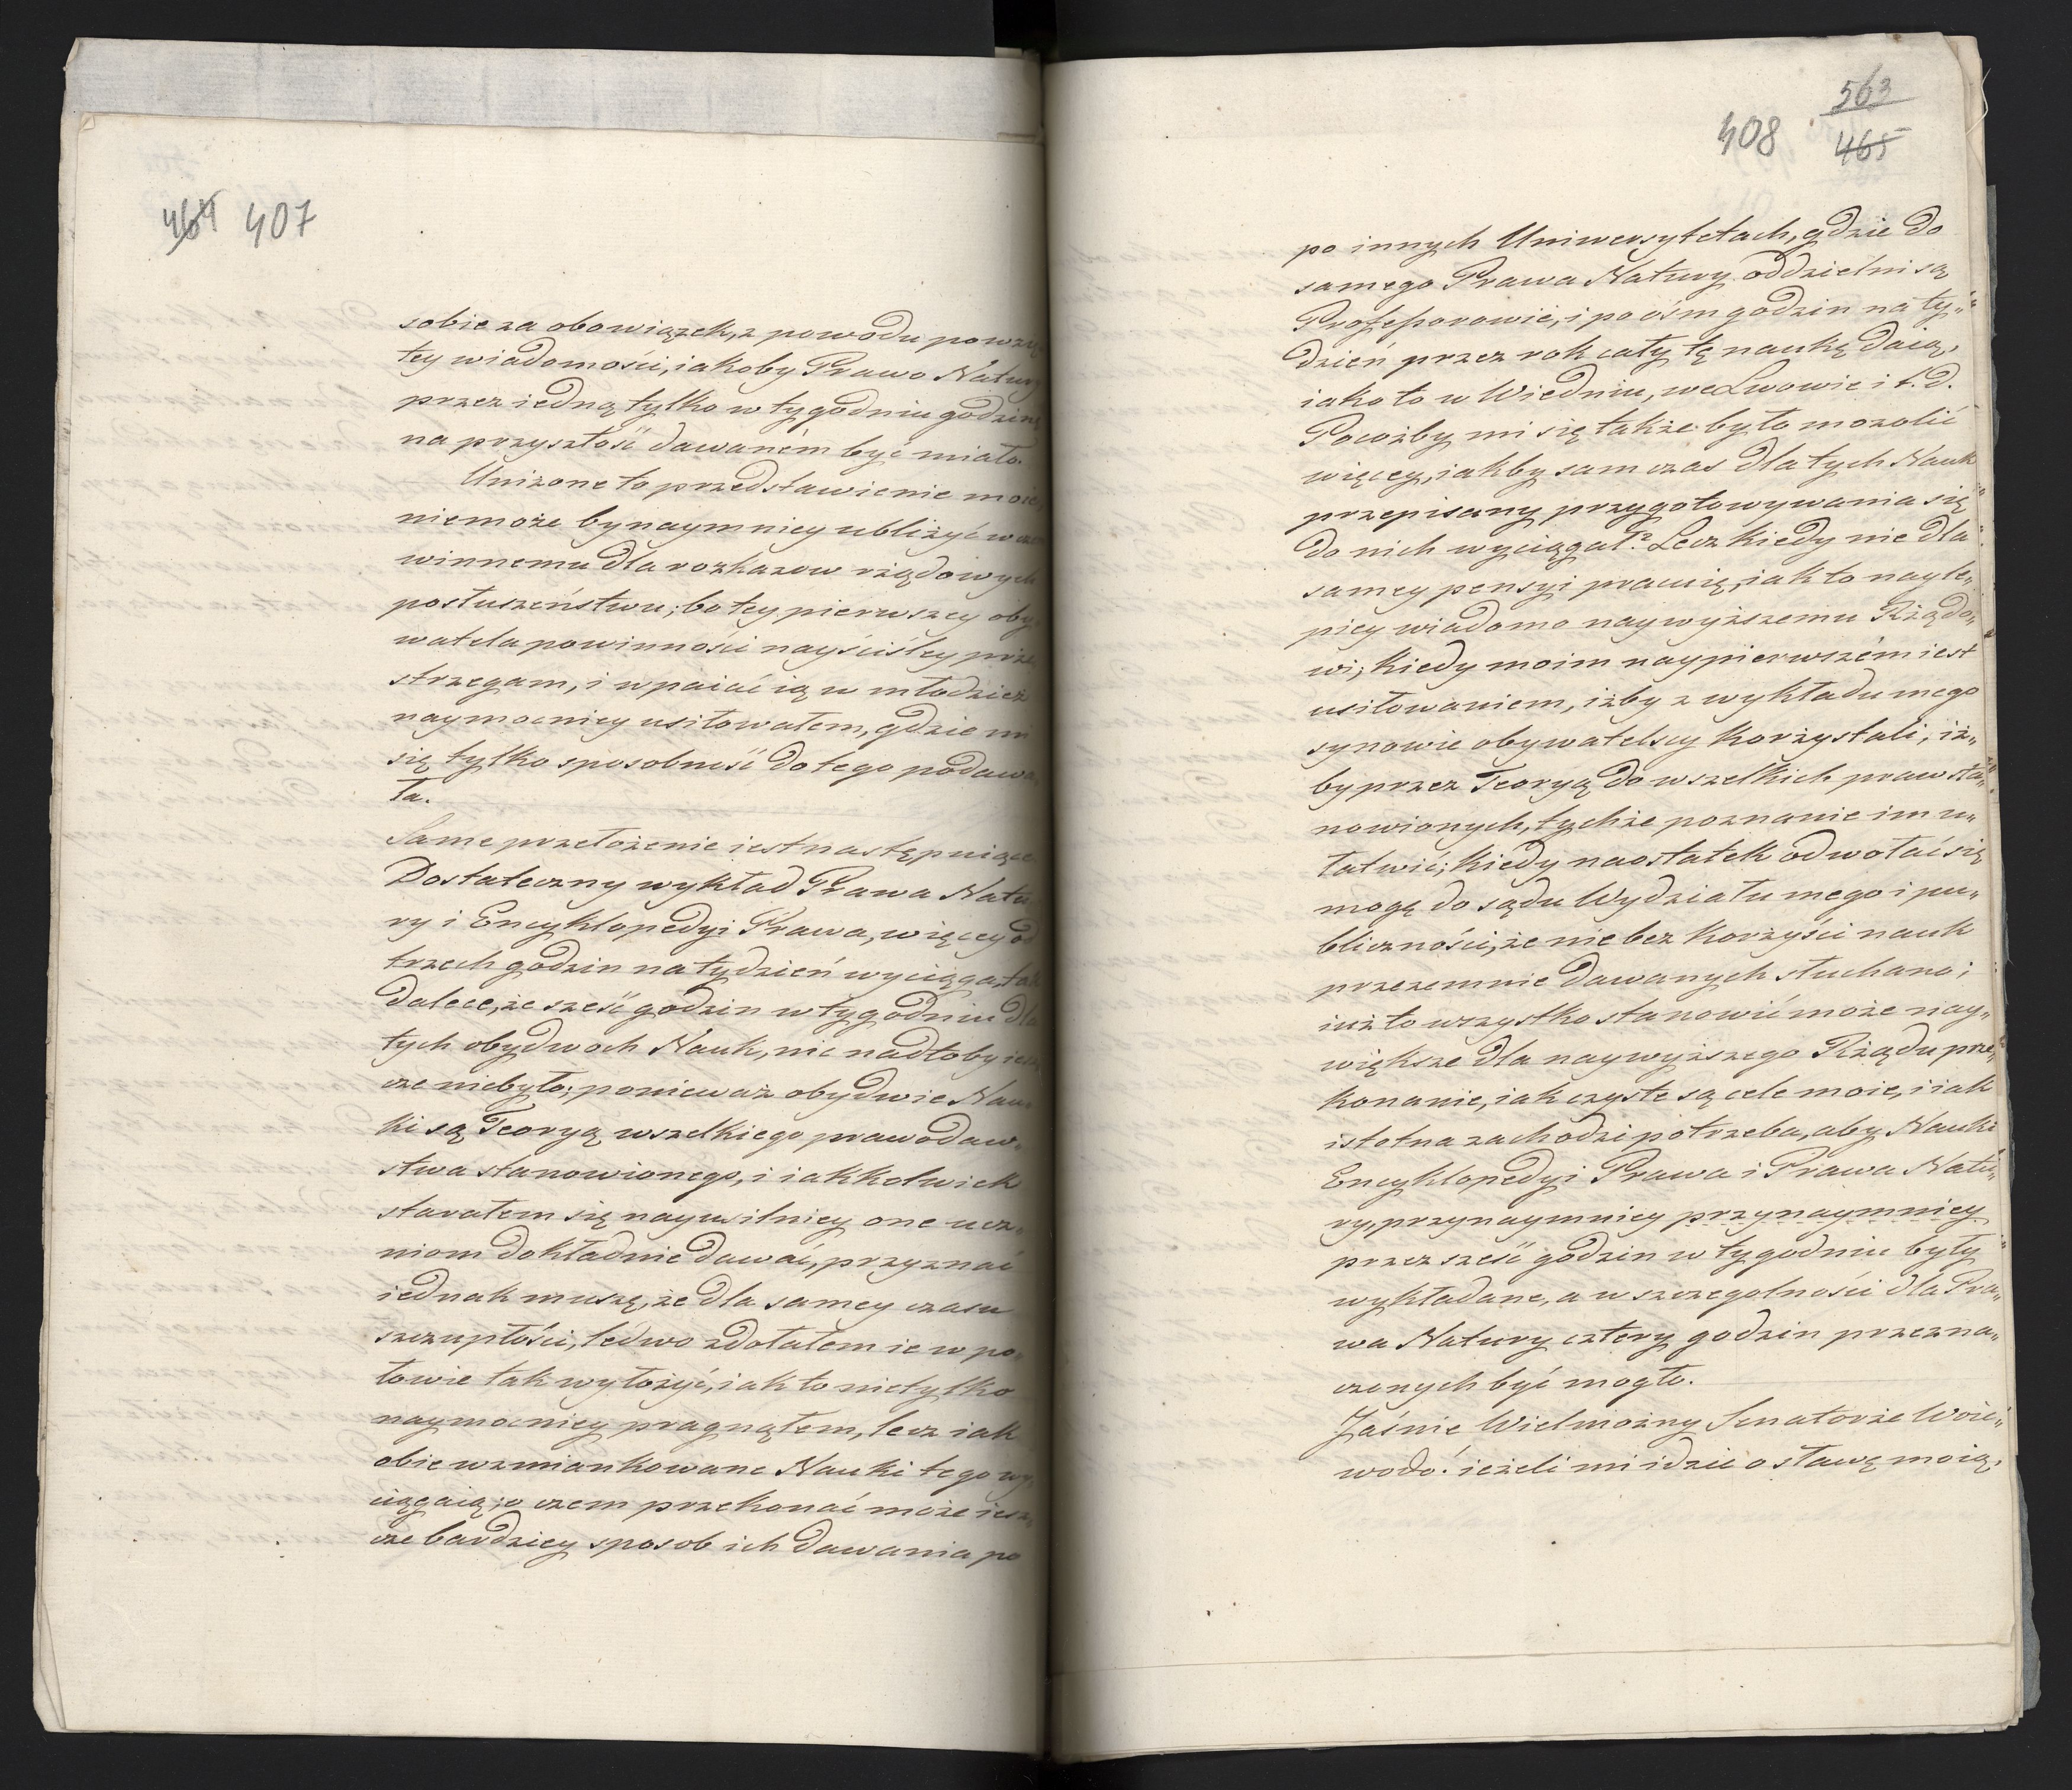 464 407
sobie za obowiązek, z powodu powzię-
tey wiadomości, iakoby Prawo Natury
przez iedną tylko w tygodniu godzinę
na przyszłość dawaném być miało.
Uniżone to przedstawienie moie,
niemoże bynaymniey ubliżyć w
winnemu dla rozkazow rządowych
posłuszeństwu; bo tey pierwszey oby-
watela powinności nayściśley prze-
strzegam, i wpaiać ią w młodzież
naymocniey usiłowałem, gdzie mi
się tylko sposobność do tego podawa-
ła.
Same przełożenie iest następuiące
Dostateczny wykład Prawa Natu-
ry i Encyklopedyi Prawa, więcey od
trzech godzin na tydzień wyciąga, tak
dalece, że sześć godzin w tygodniu dla
tych obydwoch Nauk, nic nadtoby iesz-
cze niebyło; ponieważ obydwie Nau-
ki są Teoryą wszelkiego prawodaw-
stwa stanowionego, i iakkolwiek
starałem się nayusilniey one ucz-
niom dokładnie dawać, przyznać
iednak muszę, że dla samey czasu
szczupłości, ledwo zdołałem ie w po-
łowie tak wyłożyć, iak to nietylko
naymocniey pragnąłem, lecz iak
obie wzmiankowane Nauki tego wy-
ciągaią; o czem przekonać może iesz-
cze bardziey sposob ich dawania po
563
408 465
po innych Uniwersytetach, gdzie do
samego Prawa Natury oddzielni są
Professorowie, i po ośm godzin na ty„
dzień przez rok cały tę naukę daią,
iako to w Wiedniu, we Lwowie i t. d.
Pocożby mi się także było mozolić
więcey, iakby sam czas dla tych Nauk
przepisany przygotowywania się
do nich wyciągał? Lecz kiedy nie dla
samey pensyi pracuię, iak to nayle„
piey wiadomo naywyższemu Rządo„
wi; kiedy moim naypierwszém iest
usiłowaniem, iżby z wykładu mego
synowie obywatelscy korzystali, iż„
by przez Teoryą do wszelkich praw sta„
nowionych, tychże poznanie im u„
łatwić; kiedy naostatek odwołać się
mogę do sądu Wydziału mego i pu„
bliczności, że nie bez korzyści nauk
przezemnie dawanych słuchano;
iuż to wszystko stanowić może nay„
większe dla naywyższego Rządu prze„
konanie, iak czyste są cele moie, i iak
istotna zachodzi potrzeba, aby Nauki
Encyklopedyi Prawa i Prawa Natu„
ry przynaymniey przynaymniey
przez sześć godzin w tygodniu były
wykładane, a w szczegolności dla Pra„
wa Natury cztery godzin przezna„
czonych być mogło.
Jaśnie Wielmożny Senatorze Woie„
wodo! ieżeli mi idzie o sławę moią,